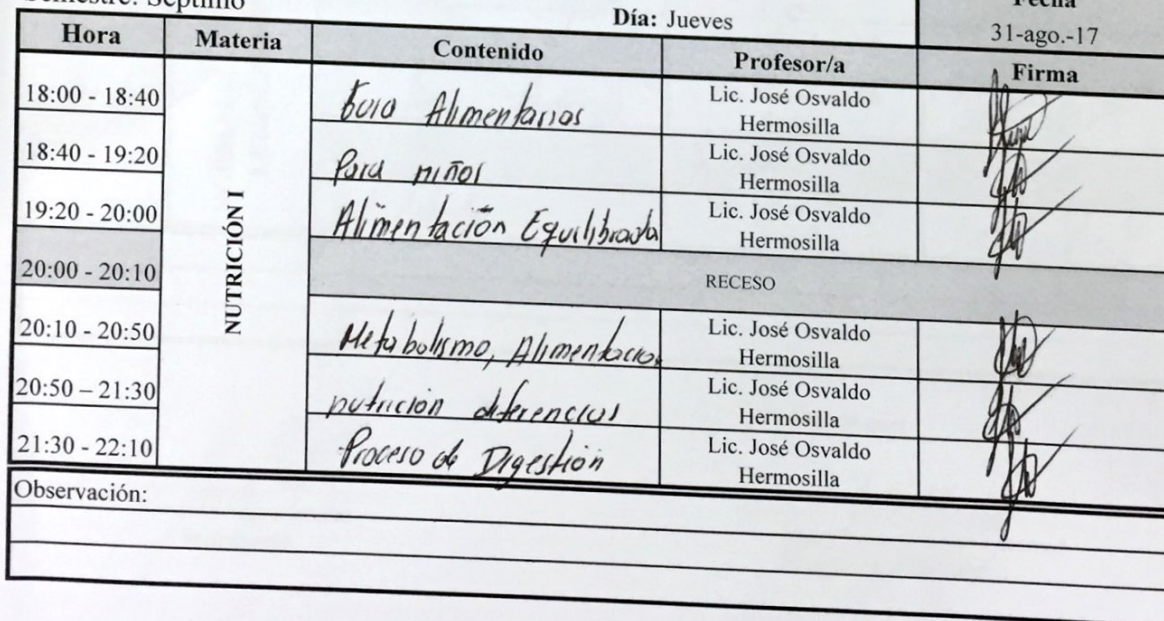 Semestre: Séptimo
Día: Jueves
Fecha
31-ago.-17
Hora Materia Contenido Profesor/a Firma
NUTRICIÓN I
18:00 - 18:40 Alimentarias Lic. José Osvaldo
Hermosilla
18:40 - 19:20 Para niños Lic. José Osvaldo
Hermosilla
19:20 - 20:00 Alimentación Equilibrada Lic. José Osvaldo
Hermosilla
20:00 - 20:10 RECESO
20:10 - 20:50 Metabolismo, Alimentacion Lic. José Osvaldo
Hermosilla
20:50 – 21:30 nutrición diferencias Lic. José Osvaldo
Hermosilla
21:30 - 22:10 Proceso de Digestión Lic. José Osvaldo
Hermosilla
Observación: